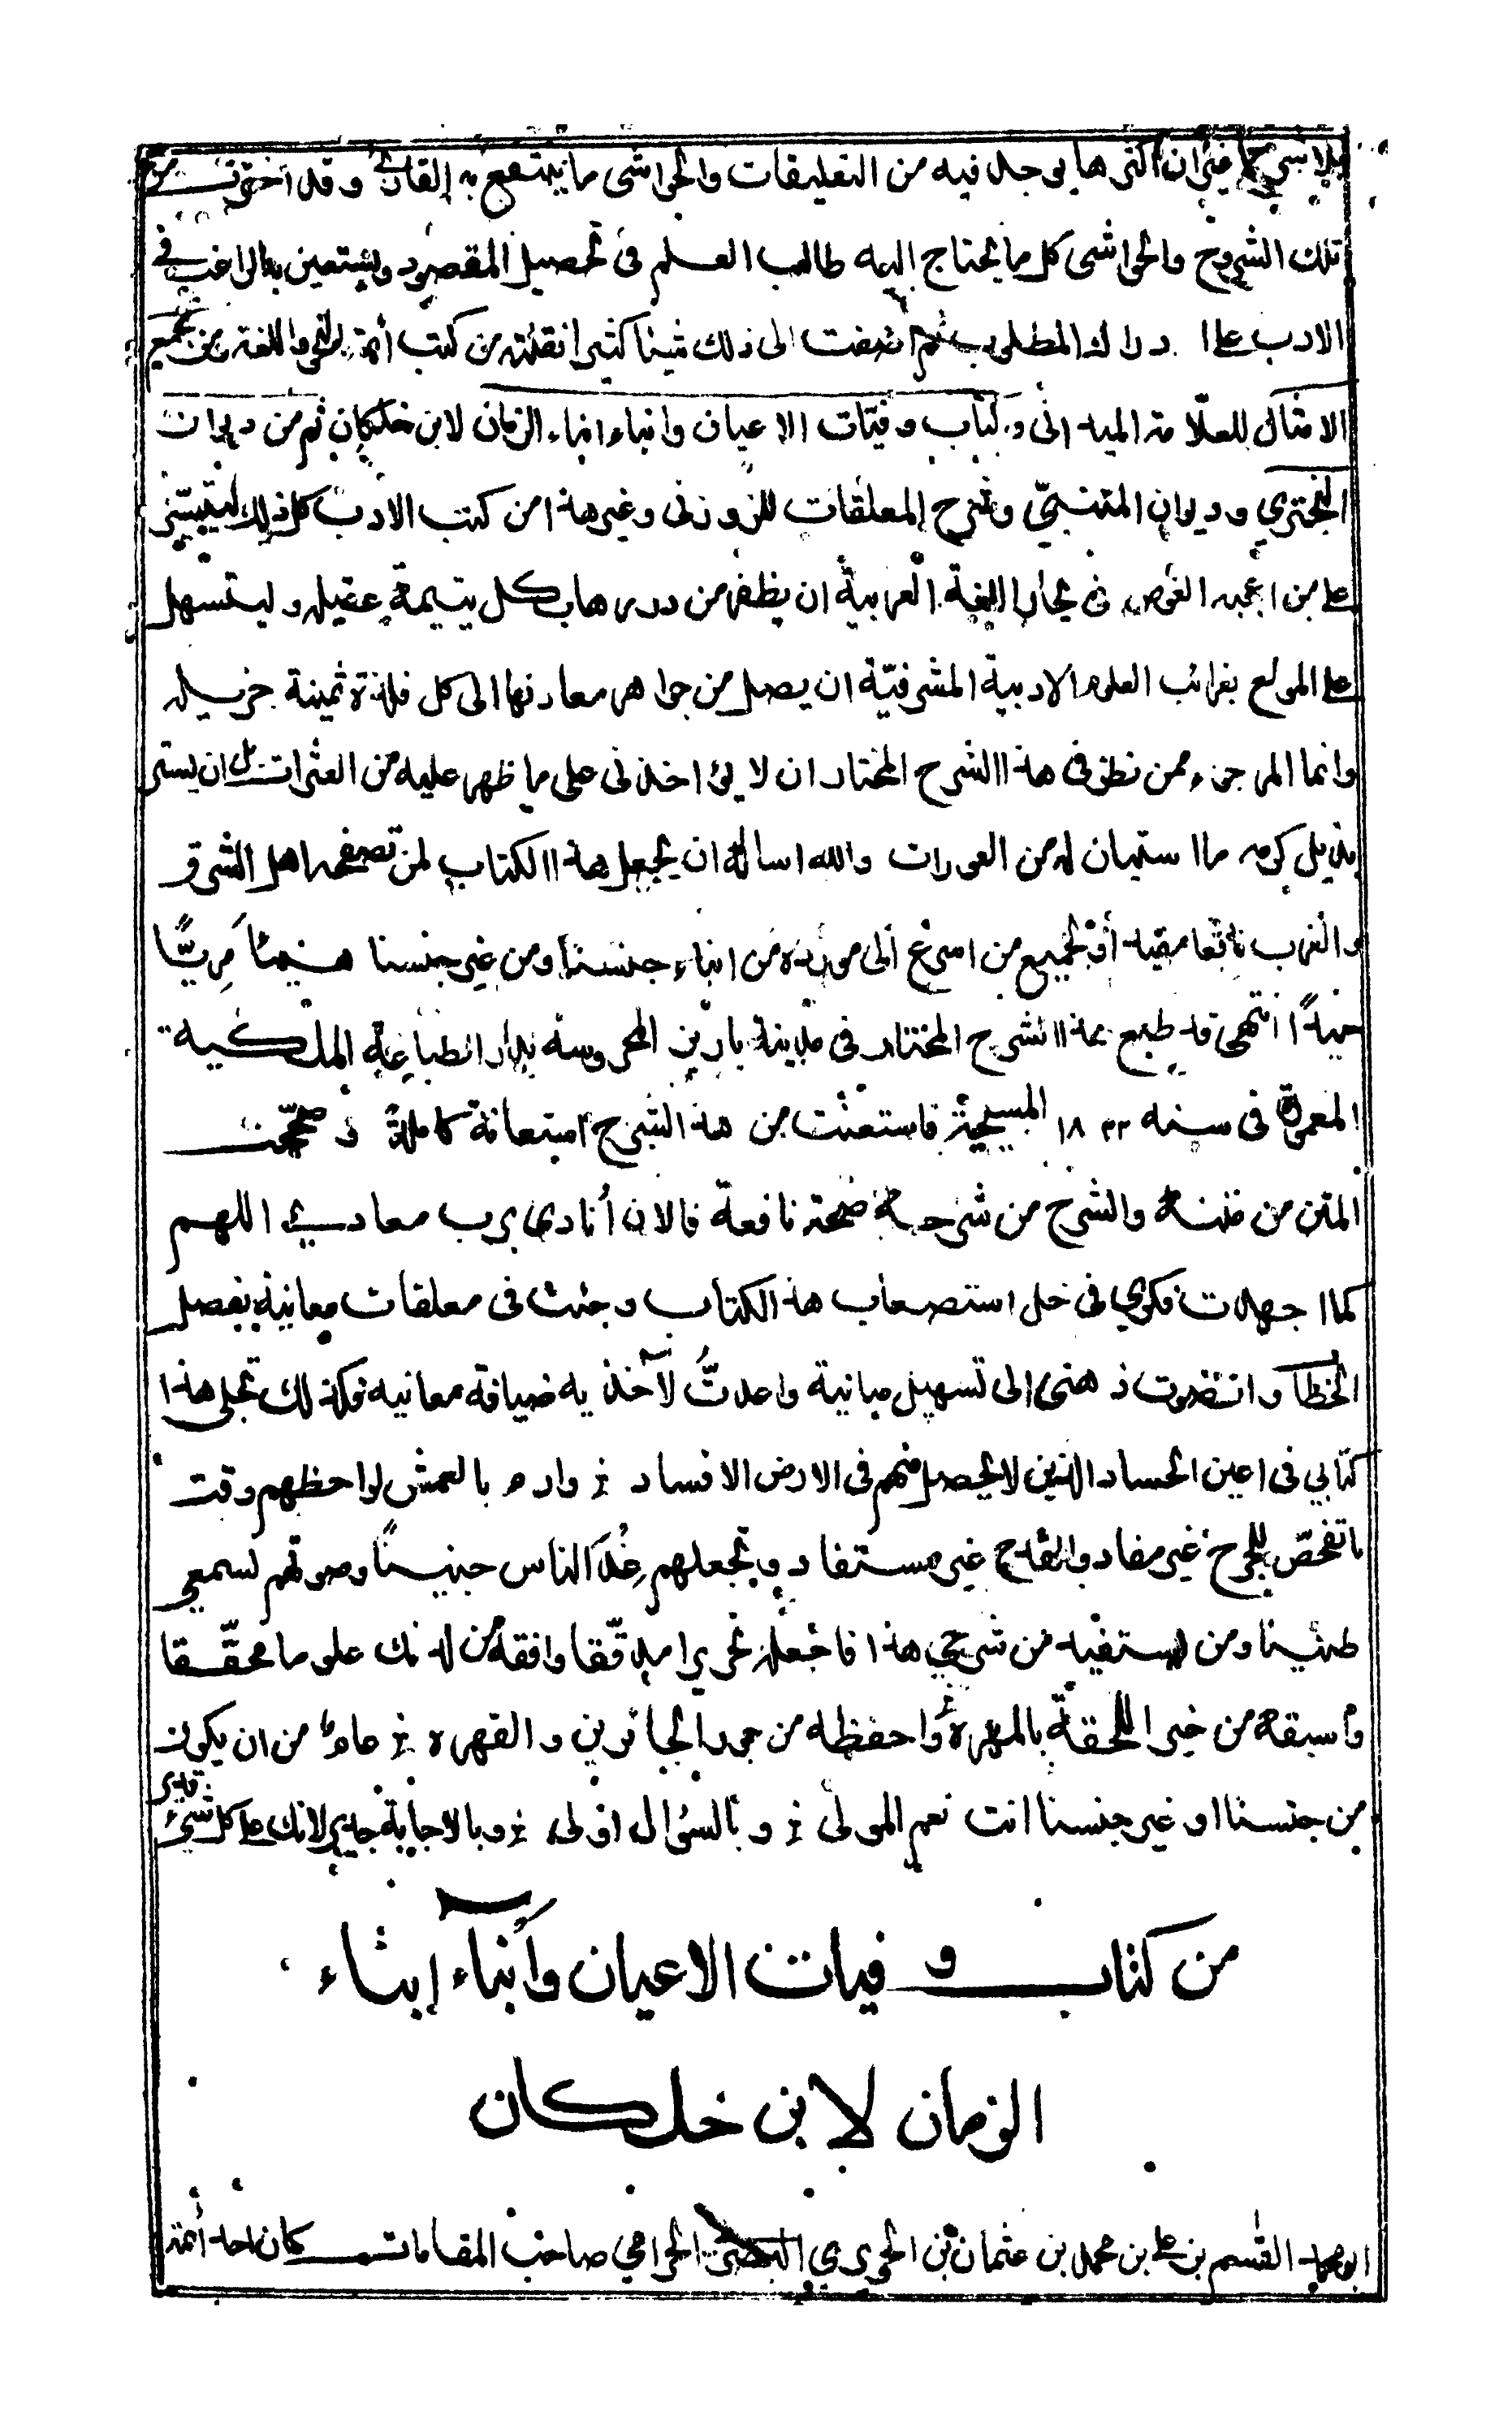 بلا شرح غير ان اكثرها يوجد فيه من التعليقات والحواشى ما ينتفع به القارئ وقد احتوت
تلك الشروح والحواشى كل ما يحتاج اليه طالب العلم فى تحصيل المقصود ويستعين به الراغب فى
الادب على ادراك المطلوب ثم اضفت الى ذلك شيئا كثيرا نقلته من كتب أئمة النحو واللغة من مجمع
الامثال للعلّامة الميدانى وكتاب وفيّات الاعيان وانباء ابناء الزمان لابن خلكان ثم من ديوان
البحتري وديوان المتنبيّ وشرح المعلقات للزوزنى وغيرها من كتب الادب كل ذلك ليتيسّر
على من اعجبه الغوص فى بحار اللغة العربية ان يظفر من دررها بكل يتيمة عقيلة وليتسهل
على المولع بغرائب العلوم الادبية المشرقيّة ان يصل من جواهر معادنها الى كل فلذة ثمينة جزيلة
وانما المرجوء ممن نظر فى هذا الشرح المختار ان لا يؤاخذنى على ما ظهر عليه من العثرات بل ان يستر
بذيل كرمه ما استبان له من العورات والله اساله ان يجعل هذا الكتاب لمن تصفحه من اهل الشرق
والغرب نافعا مفيدا ولجميع من اسرع الى مورده من ابناء جنسنا ومن غير جنسنا هنيئا مَريًّا
انتهى قد طبع هذا الشرح المختار فى مدينة باريز المحروسة بدار الطباعة الملكية
المعمورة فى سنه ١٨٢٢ المسيحية فاستعنت من هذا الشرح استعانة كاملةً وصححّت
المتن من متنه والشرح من شرحه صحة نافعة فالان أنادى برب معادي اللهم
كما اجهدت فكري فى حل استصعاب هذا الكتاب وجئت فى معلقات معانيه بفصل
الخطاب وانتضوت ذهنى الى تسهيل مبانية واعدتُّ لآخذيه ضيافة معانيه فكذلك تجلى هذا
كتابي فى اعين الحساد الذين لا يحصل منهم فى الارض الا فساد ؛ وادم بالعمش لواحظهم وقت
ما تفحصّ للجرح غير مفاد والقدح غير مستفاد وتجعلهم خُلَّ الناس حنينًا وصوتهم لسمعي
طنينا ومن استفيد من شرحي هذا فاجعله نحريرا مدقّقا وافقه من لدنك علوما محقّقا
وأسبقه من خير اللحقة بالمهرة واحفظه من جور الجائرين والقهرة ؛ عام من ان يكون
من جنسنا او غير جنسنا انت نعم المولى ؛ وبالسؤال اولى ؛ وبالاجابة جدير لانك على كل شئ قدير
من كتاب وفيات الاعيان وأنباء إبناء
الزمان لابن خلكان
ابو محمد القسم بن على بن محمد بن عثمان بن الحريري البصرى الحرامي صاحب المقامات كان احد أئمة